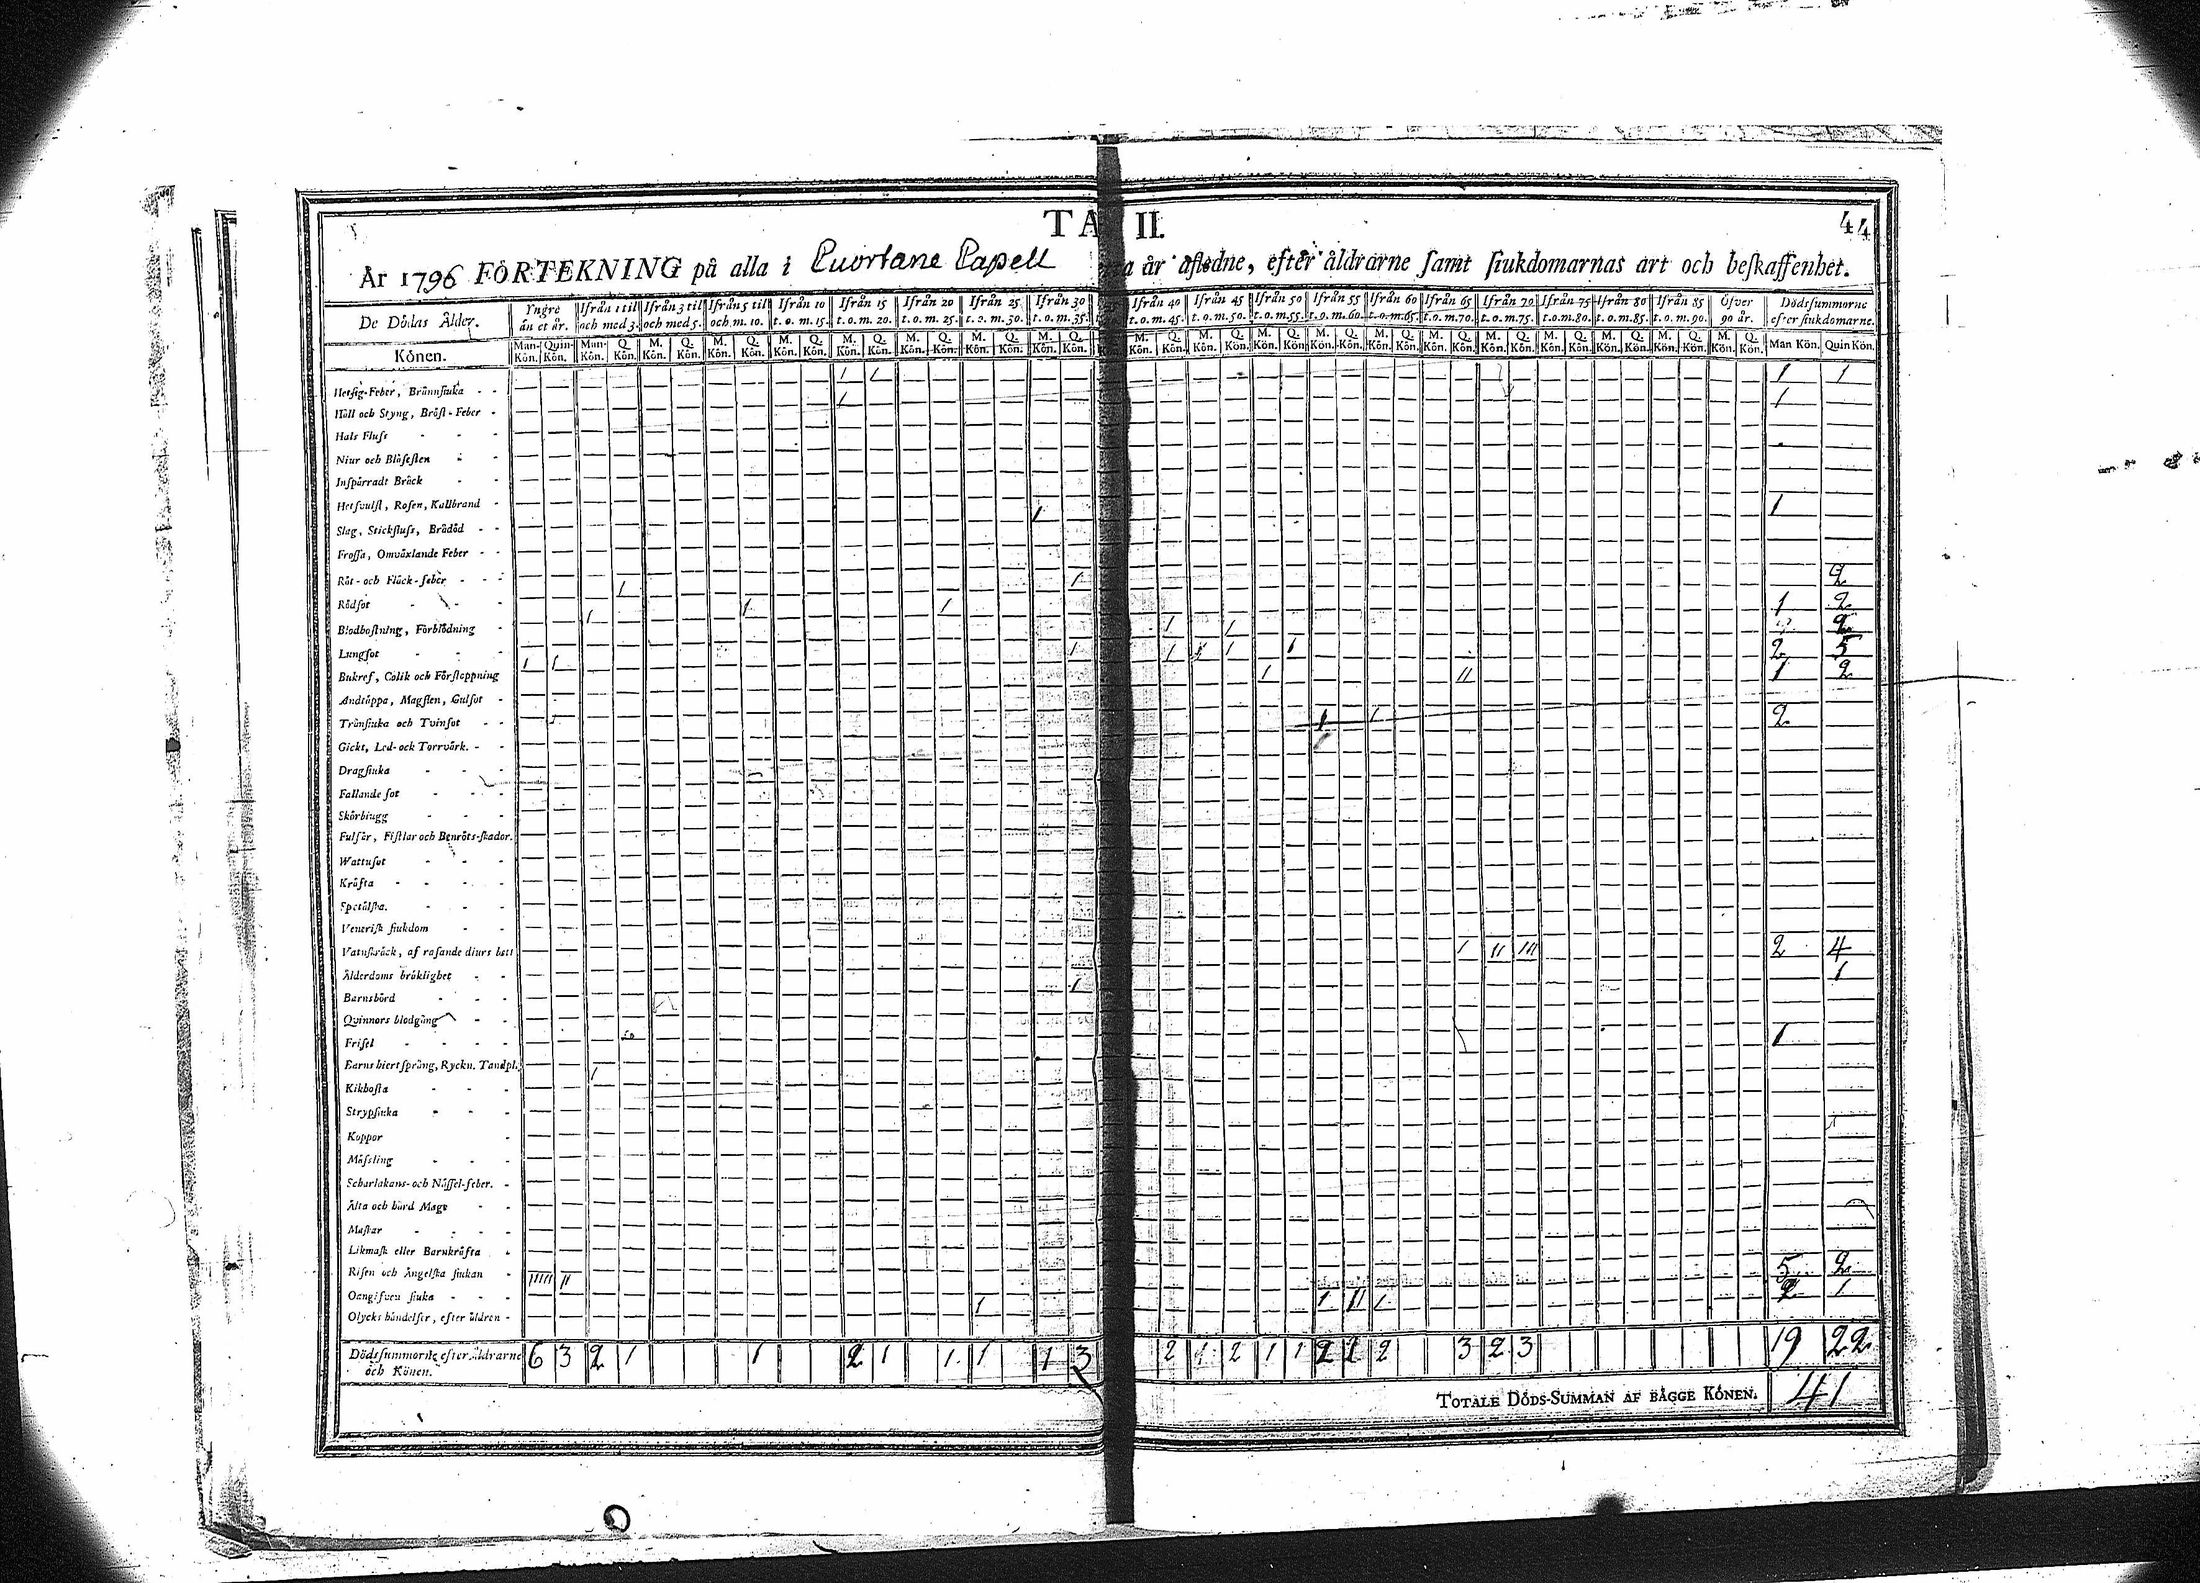 TA II.
44
År 1796 FÖRTEKNING på alla i Cuortane Capell år aflidne, efter åldrarne samt siukdomarnas art och beskaffenhet.
De Dödas Ålder. Yngre än et år. Ifrån 1 til och med 3. Ifrån 3 til och med 5. Ifrån 5 til och m. 10. Ifrån 10 t. o. m. 15. Ifrån 15 t. o. m. 20. Ifrån 20 t. o. m. 25. Ifrån 25 t. o. m. 30. Ifrån 30 t. o. m. 35. Ifrån 40 t. o. m. 45. Ifrån 45 t. o. m. 50. Ifrån 50 t. o. m. 55. Ifrån 55 t. o. m. 60. Ifrån 60 t. o. m. 65. Ifrån 65 t. o. m. 70. Ifrån 70 t. o. m. 75. Ifrån 75 t. o. m. 80. Ifrån 80 t. o. m. 85. Ifrån 85 t. o. m. 90. Öfver 90 år. Dödssummorne efter siukdomarne.
Könen. Man-Kön. Quin-Kön. Man-Kön. Q. Kön. M. Kön. Q. Kön. M. Kön. Q. Kön. M. Kön. Q. Kön. M. Kön. Q. Kön. M. Kön. Q. Kön. M. Kön. Q. Kön. M. Kön. Q. Kön. M. Kön. Q. Kön. M. Kön. Q. Kön. M. Kön. Q. Kön. M. Kön. Q. Kön. M. Kön. Q. Kön. M. Kön. Q. Kön. M. Kön. Q. Kön. M. Kön. Q. Kön. M. Kön. Q. Kön. M. Kön. Q. Kön. M. Kön. Q. Kön. Man Kön. Quin Kön.
Hetsig-Feber, Brännsiuka 1 1 1 1
Håll och Styng, Bröst-Feber 1 1
Hals Fluss
Niur och Blåsesten
Inspärradt Bräck
Hetsvulst, Rosen, Kallbrand
Slag, Stickfluss, Brådöd 1 1
Frossa, Omväxlande Feber
Röt- och Fläck-feber
Rödsot 1 1 2
Blodhostning, Förblödning 1 1 1 1 2
Lungsot 1 1 2
Bukref, Colik och Förstoppning 1 1 1 1 1 1 1 2 5
Andtäppa, Magsten, Gulsot 1 II 1 2
Tränsiuka och Tvinsot
Gickt, Led- och Torrvärk. 1 1 2
Dragsiuka
Fallande sot
Skörbiugg
Fulsår, Fistlar och Benröts-skador.
Wattusot
Kräfta
Spetälska.
Venerisk siukdom
Vatuskräck, af rasande diurs bett
Ålderdoms bräklighet 1 II III 2 4
Barnsbörd 1 1
Quinnors blodgång
Frisel
Barns hiertsprång, Ryckn. Tandpl. 1 1
Kikhosta
Strypsiuka
Koppor
Mässling
Scharlakans- och Nässel-feber.
Älta och hård Mage
Maskar
Likmask eller Barnkräfta
Risen och Ängelska siukan
Oangifven siuka IIIII II 5 2
Olycks händelser, efter åldren 1 1 II 1 2 1
Dödssummorne efter Åldrarne och Könen. 6 3 2 1 1 2 1 1 1 1 3 2 1 2 1 1 2 1 2 3 2 3 19 22
TOTALE DÖDS-SUMMAN AF BÅGGE KÖNEN. 41